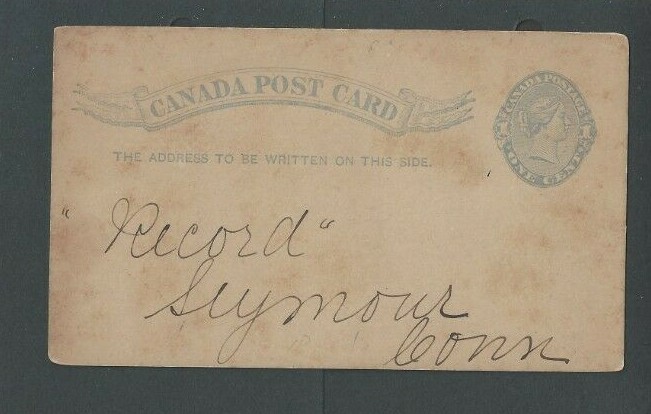 CANADA POST CARD
CANADA POSTAGE
1 1
ONE CENT
THE ADDRESS TO BE WRITTEN ON THIS SIDE.
"Record"
Seymour
Conn